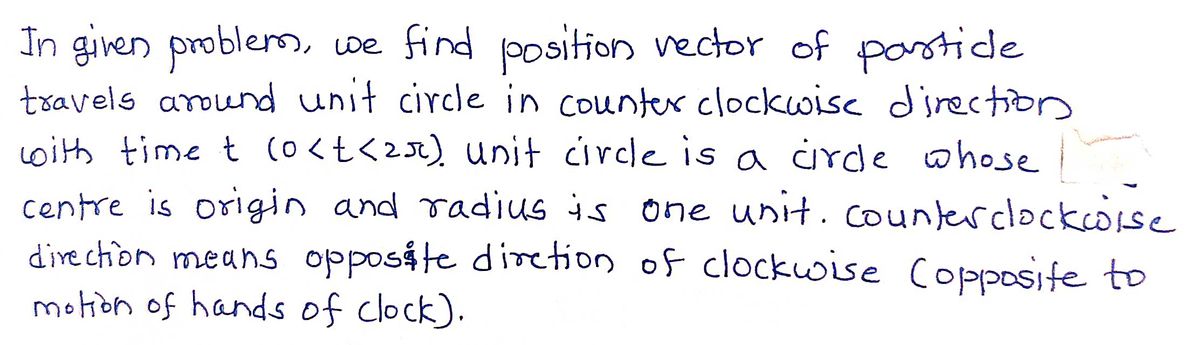 In given problem, we find position vector of particle
travels around unit circle in counter clockwise direction
with time t (0<t<2π). unit circle is a circle whose
centre is origin and radius is one unit. counterclockwise
direction means opposite dirction of clockwise (opposite to
motion of hands of clock).